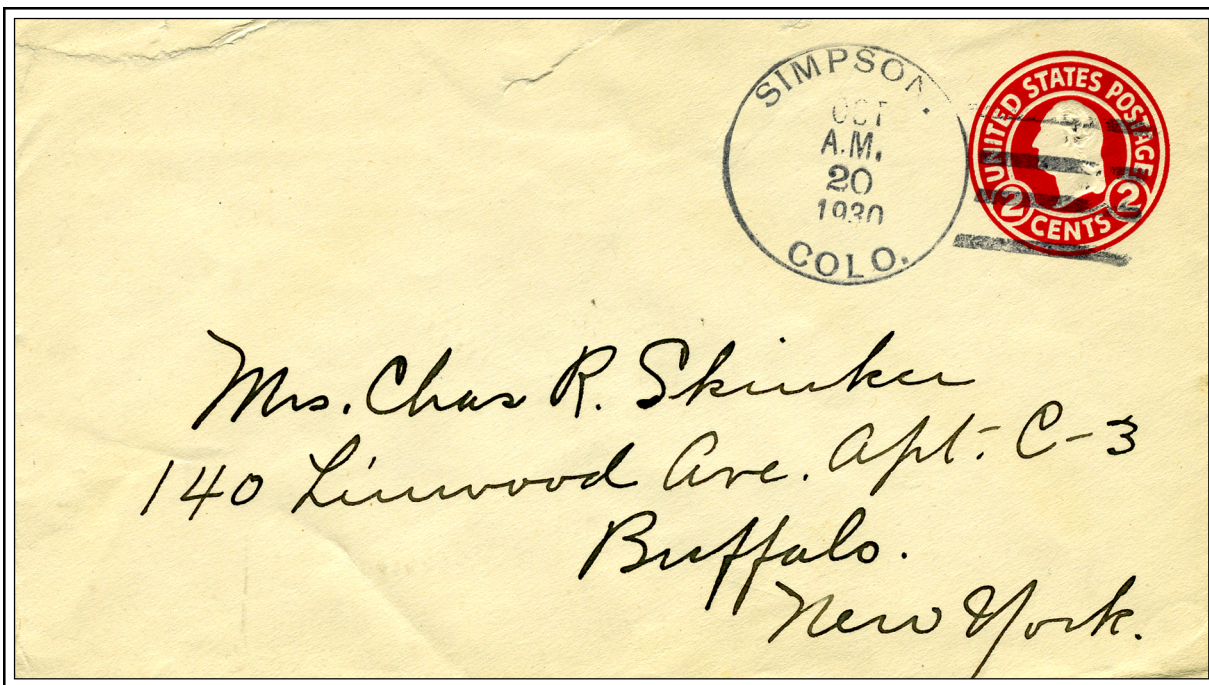 SIMPSON.
OCT
A.M.
20
1930
COLO.
UNITED STATES POSTAGE
2 CENTS 2
Mrs. Chas R. Skinker
140 Linwood Ave. Apt. C-3
Buffalo.
New York.